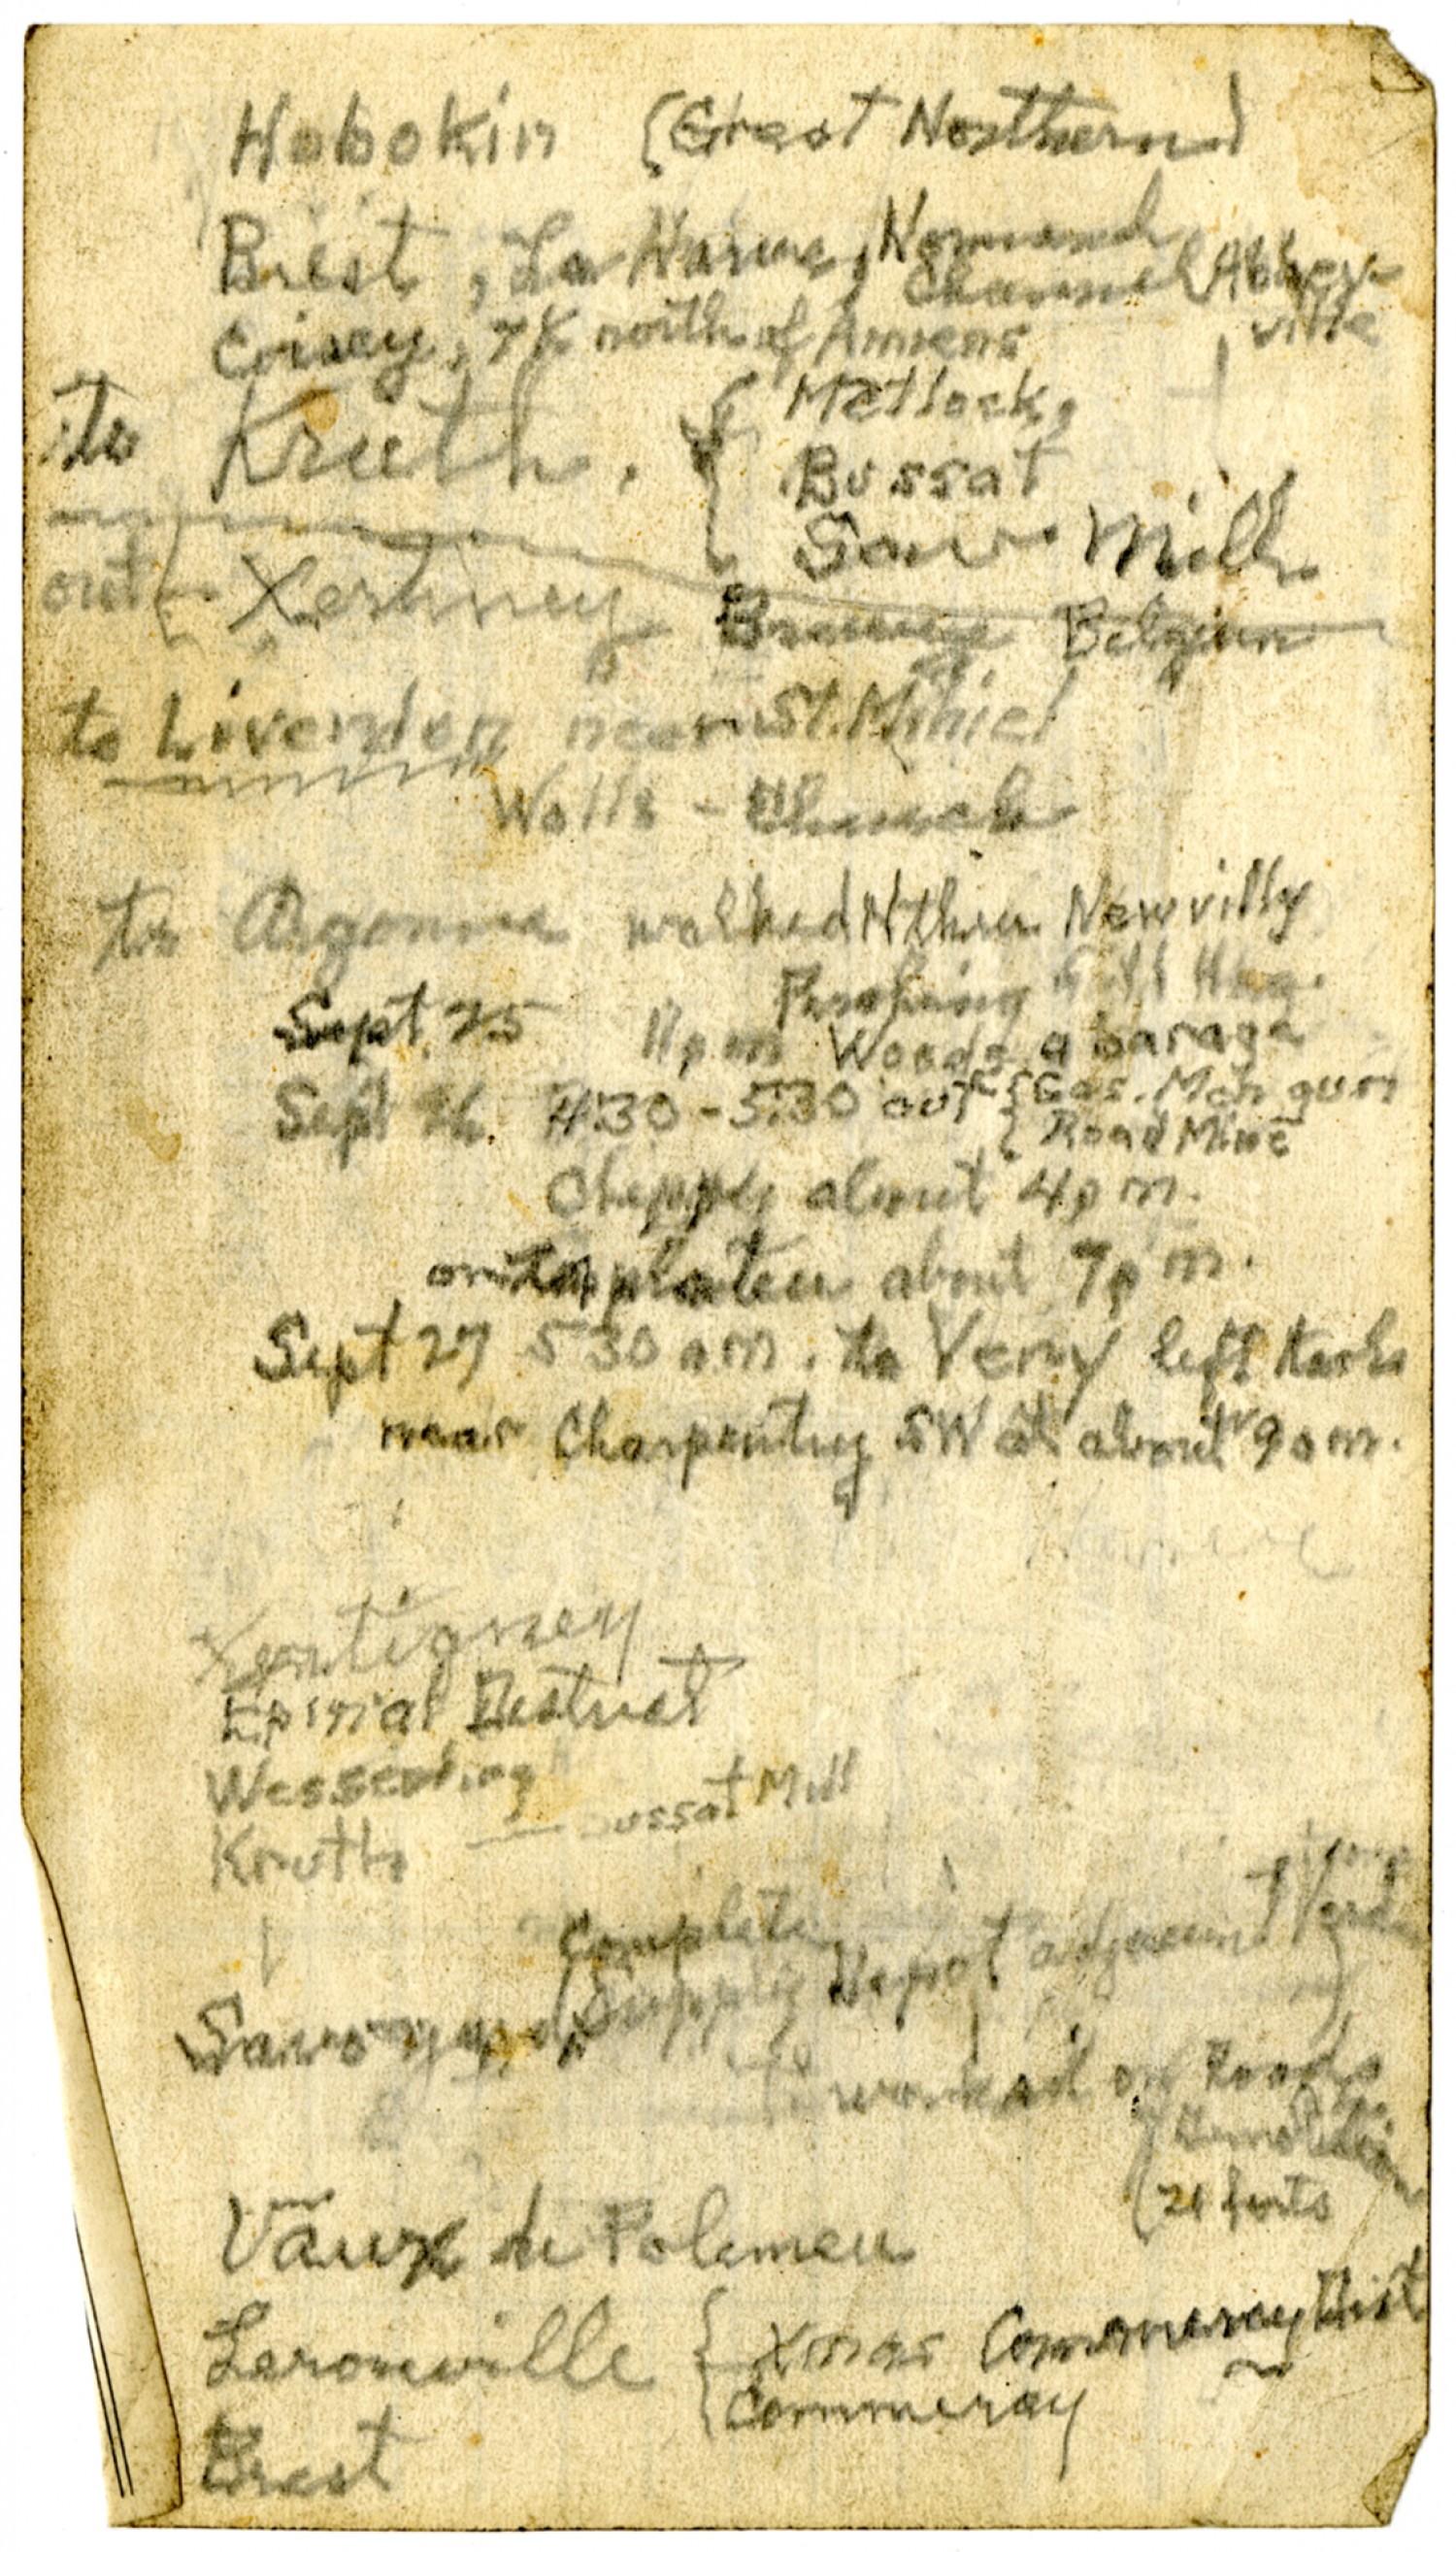 Hobokin (Great Northern)
Brest, La Havre, Normand
Channel Abbeyville
Crisey, 7K north of Amiens
to Kruth. { Matlock,
Bussat
Saw Mill
out Xertiney Brauge Belgium
to Liverdon near St. Mihiel
Walls - Church
to Argonne walked N thru Newvilly
Sept. 25 11 pm Woods, a barage
Sept 26 4:30 - 5:30 out { Gas. Mch gun
Road Mine
Cheppy about 4 pm.
on top plateu about 7 pm.
Sept 27 530 am. to Verry left tanks
near Charpentry SW at about 9 am.
Xertigney
Epinal District
Wesserling "
Kruth — Bussat Mill
Complete
Supply Depot adjacent
worked on Roads
21 forts
Vaux de Polameu
Lerouville { Xmas Commeray Dist
Commeray
Brest